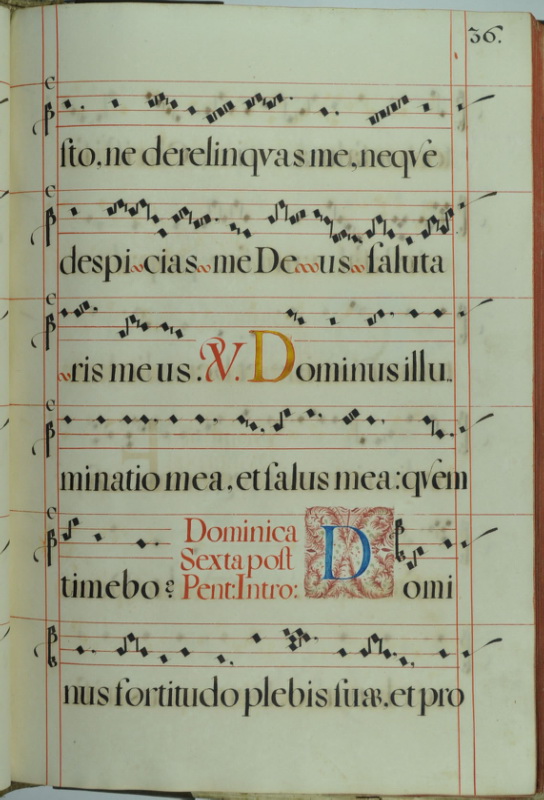 36.
sto, ne derelinqvas me, neqve
despicias me Deus saluta
ris meus. V. Dominus illu..
minatio mea, et salus mea: qvem
timebo?
Dominica
Sexta post
Pent: Intro:
Domi
nus fortitudo plebis suæ, et pro